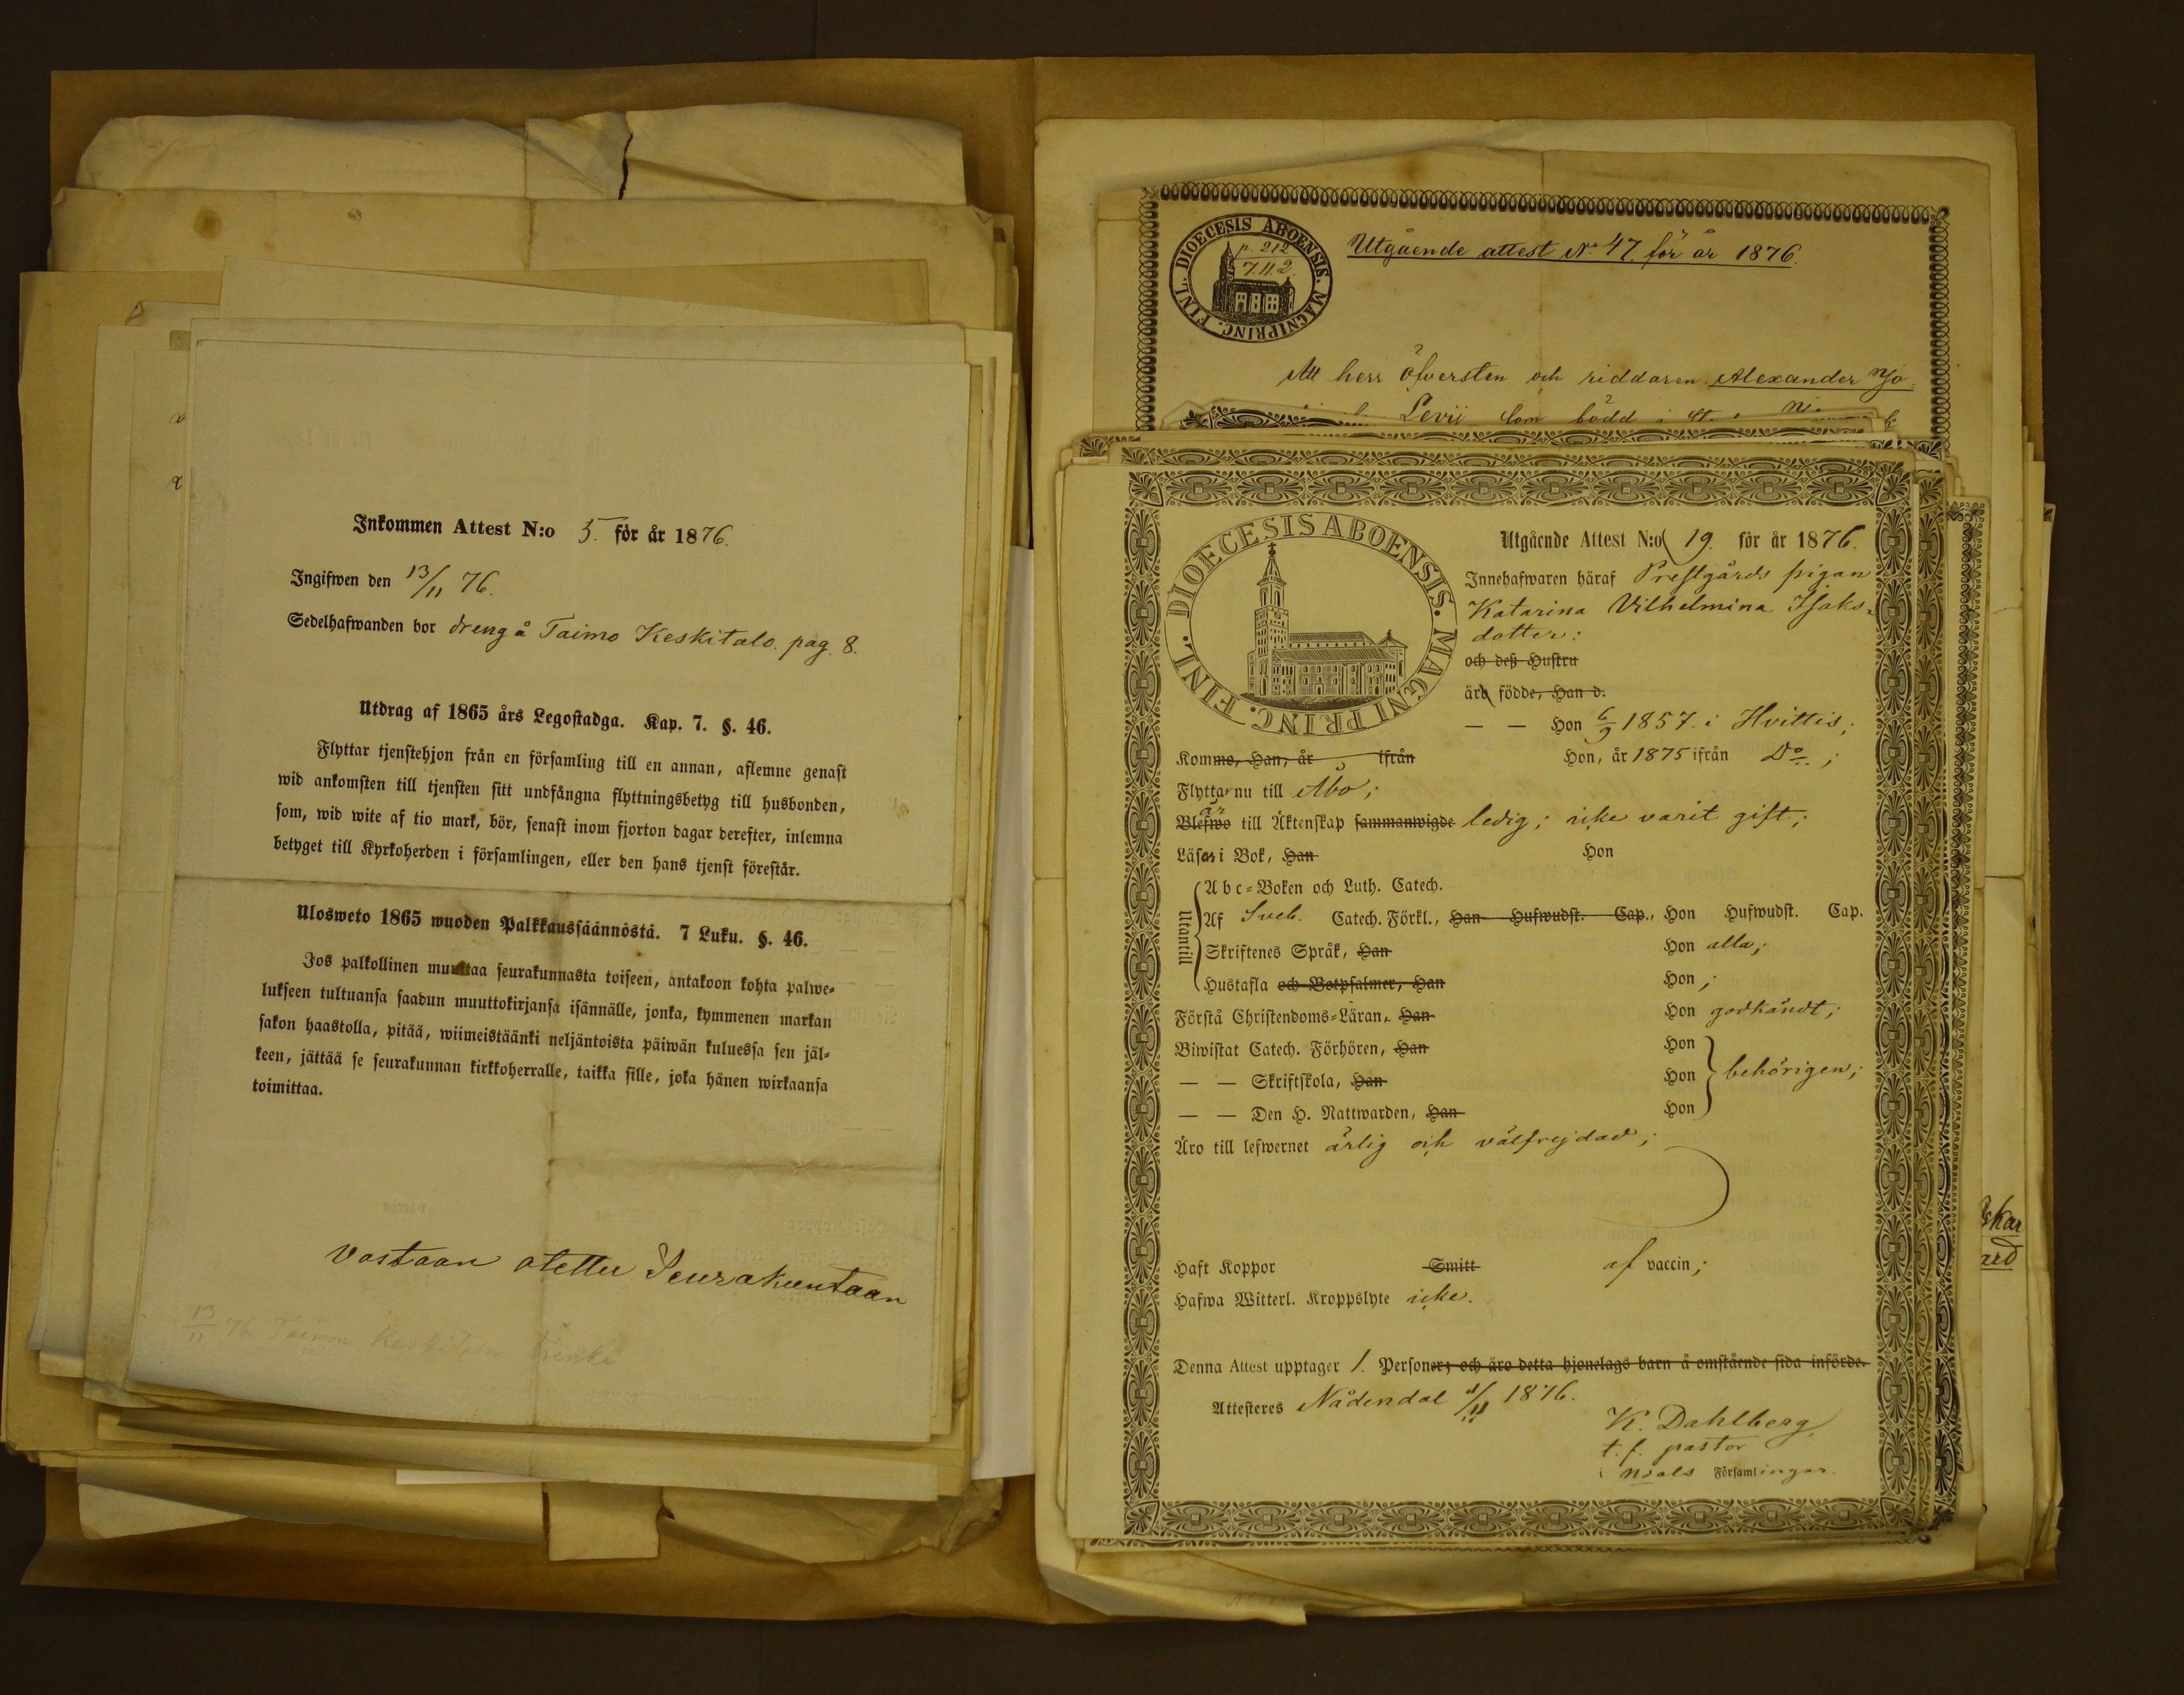 Inkommen Attest N:o 5. för år 1876.
Ingifwen den 13/11 76.
Sedelhafwanden bor dreng å Taimo Keskitalo. pag. 8.
Utdrag af 1865 års Legostadga. Kap. 7. §. 46.
Flyttar tjenstehjon från en församling till en annan, aflemne genast
wid ankomsten till tjensten sitt undfångna flyttningsbetyg till husbonden,
som, wid wite af tio mark, bör, senast inom fjorton dagar derefter, inlemna
betyget till Kyrkoherden i församlingen, eller den hans tjenst förestår.
Ulosweto 1865 wuoden Palkkaussäännöstä. 7 Luku. §. 46.
Jos palkollinen muuttaa seurakunnasta toiseen, antakoon kohta palwe-
lukseen tultuansa saadun muuttokirjansa isännälle, jonka, kymmenen markan
sakon haastolla, pitää, wiimeistäänki neljäntoista päiwän kuluessa sen jäl-
keen, jättää se seurakunnan kirkkoherralle, taikka sille, joka hänen wirkaansa
toimittaa.
vastaan otettu Seurakuntaan
13/11 76 Taimon Keskitalon renki
DIOECESIS ABOENSIS. MAGNIPRINC. FINL.
p. 212
7.11.2.
Utgående attest No 47. för år 1876.
Att herr öfversten och riddaren Alexander
Levii som född i
DIOECESIS ABOENSIS. MAGNI PRINC. FINL.
Utgående Attest N:o 19. för år 1876.
Innehafwaren häraf Prestgårds pigan
Katarina Vilhelmina Isaks-
dotter:
och deß Hustru
äro födde, Han d.
— — Hon 6/9 1857. i Hvittis;
Kommo, Han, år , ifrån Hon, år 1875 ifrån Do;
Flyttar nu till Åbo;
är
Blefwo till Äktenskap sammanwigde ledig; icke varit gift;
Läser i Bok, Han Hon
Utantill
Abc-Boken och Luth. Catech.
Af Sveb. Catech. Förkl., Han Hufwudst. Cap., Hon Hufwudst. Cap.
Skriftenes Språk, Han Hon alla;
Hustafla och Botpsalmer, Han Hon ;
Förstå Christendoms-Läran, Han Hon godkändt;
Biwistat Catech. Förhören, Han Hon
— — Skriftskola, Han Hon behörigen;
— — Den H. Nattwarden, Han Hon
Äro till lefwernet ärlig och välfrejdad;
Haft Koppor Smitt af vaccin;
Hafwa Witterl. Kroppslyte icke.
Denna Attest upptager 1. Personer; och äro detta hjonelags barn å omstående sida införde.
Attesteres Nådendal 1876.
K. Dahlberg,
t. f. pastor
i Församlingar.